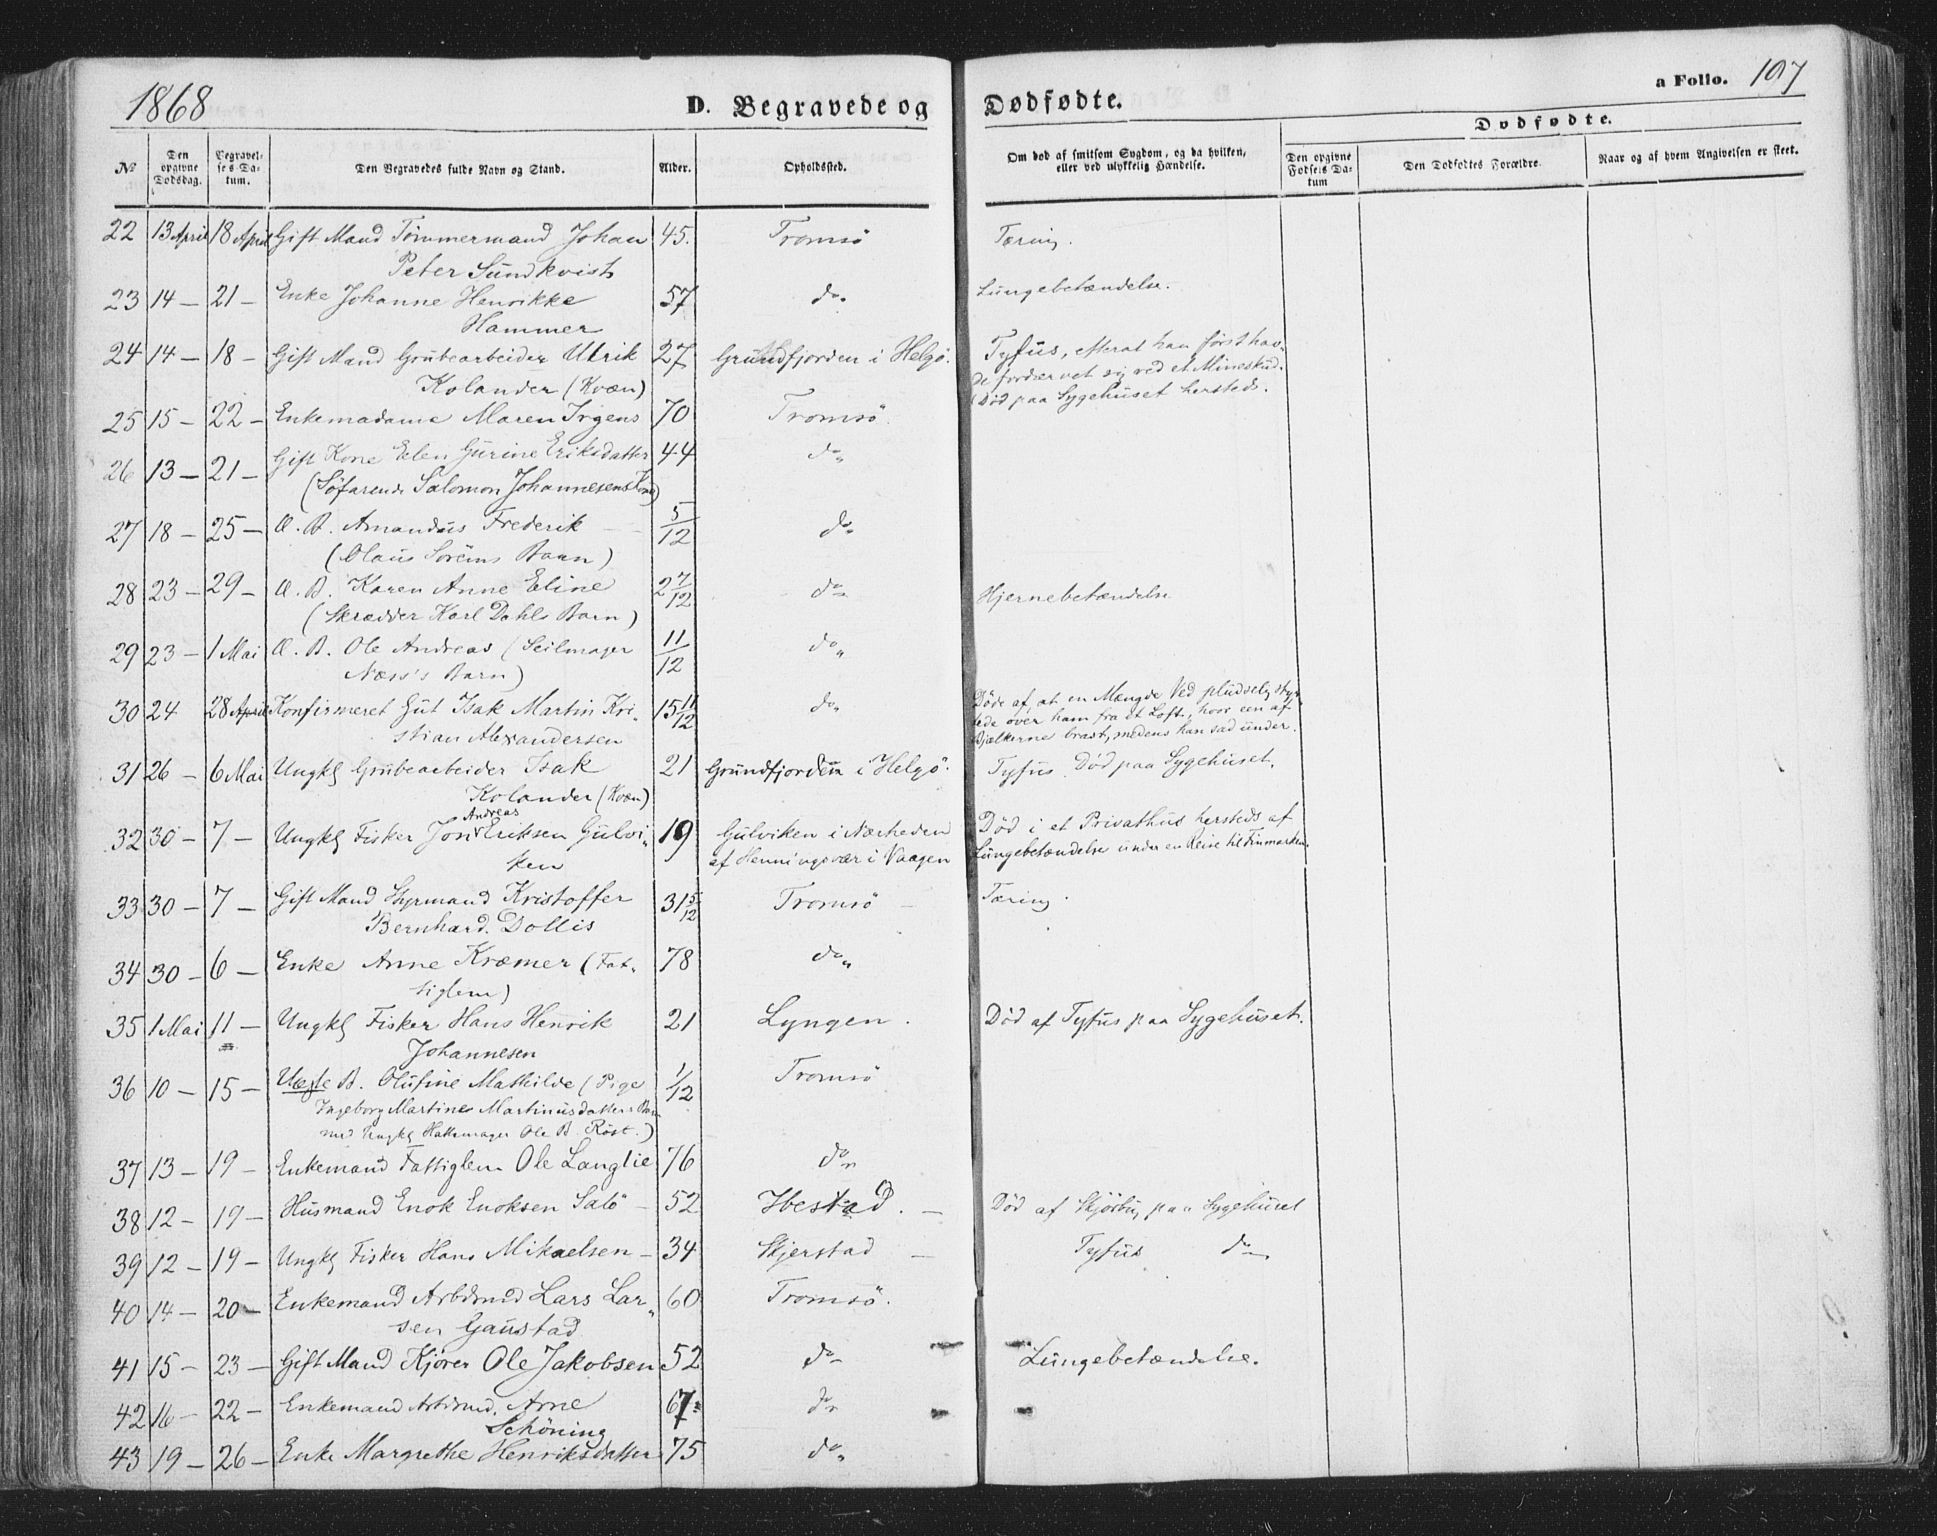 1868
D. Begravede og Dødfødte.
a Folio. 107
Dødfødte.
No
Den opgivne Dødsdag.
Begravelses Datum.
Den Begravedes fulde Navn og Stand.
Alder.
Opholdssted.
Om død af smitsom Sygdom, og da hvilken, eller ved ulykkelig Hændelse.
Den opgivne Fødsels Datum
Den Dødfødtes Forældre.
Naar og af hvem Angivelsen er skeet.
22 13 April 18 April Gift Mand Tömmermand Johan 45. Tromsö Tæring.
Peter Sundkvist
23 14 - 21 - Enke Johanne Henrikke 57 do Lungebetændelse.
Hammer
24 14 - 18 - Gift Mand Grubearbeider Ulrik 27 Grundfjorden i Helgö. Tyfus, efterat han först hav-
Kolander (Kvæn) de fordærvet sig ved et Mineskud.
(Död paa Sygehuset hersteds.
25 15 - 22 - Enkemadame Maren Irgens 70 Tromsö
26 13 - 21 - Gift Kone Elen Gurine Eriksdatter 44 do
(Söfarende Salomon Johannesens Kone)
27 18 - 25 - Æ. B. Amandus Frederik 5/12 do
(Olaus Sörems Barn)
28 23 - 29 - Æ. B. Karen Anne Eline 2 7/12 do Hjernebetændelse
(Skrædder Karl Dahls Barn)
29 23 - 1 Mai Æ. B. Ole Andreas (Seilmager 11/12 do
Næss's Barn)
30 24 28 April Konfirmeret Gut Isak Martin Kri- 15 11/12 do Döde af, at en Mængde Ved pludselig styr-
stian Alexandersen tede over ham fra et Loft, hvor een af
Bjælkerne brast, medens han sad under.
31 26 - 6 Mai Ungkl Grubearbeider Isak 21 Grundfjorden i Helgö. Tyfus. Död paa Sygehuset.
Kolander (Kvæn)
32 30 - 7 - Ungkl Fisker Jon Andreas Eriksen Gulvi- 19 Gulviken i Nærheden Död i et Privathus hersteds af
ken af Henningsvær i Vaagen Lungebetændelse under en Reise til Finmarken.
33 30 - 7 - Gift Mand Styrmand Kristoffer 31 5/12 Tromsö - Tæring.
Bernhard Dollis
34 30 - 6 - Enke Anne Kræmer (Fat- 78 do
tiglem)
35 1 Mai 11 - Ungkl Fisker Hans Henrik 21 Lyngen. Död af Tyfus paa Sygehuset.
Johannesen
36 10 - 15 - Uægte B. Olufine Mathilde (Pige 1/12 Tromsö
Ingeborg Martines Martinusdatters Barn
med Ungkl Hattemager Ole B. Röst.)
37 13 - 19 - Enkemand Fattiglem Ole Langlie 76 do
38 12 - 19 - Husmand Enok Enoksen Salö - 52 Ibestad. - Död af Skjörbug paa Sygehuset
39 12 - 19 - Ungkl Fisker Hans Mikaelsen - 34 Skjerstad - Tyfus do
40 14 - 20 - Enkemand Arbdmd Lars Lar- 60 Tromsö.
sen Gaustad
41 15 - 23 - Gift Mand Kjörer Ole Jakobsen 52 do Lungebetændelse.
42 16 - 22 - Enkemand Arbdmd. Arne 67 do
Schöning
43 19 - 26 - Enke Margrethe Henriksdatter 75 do